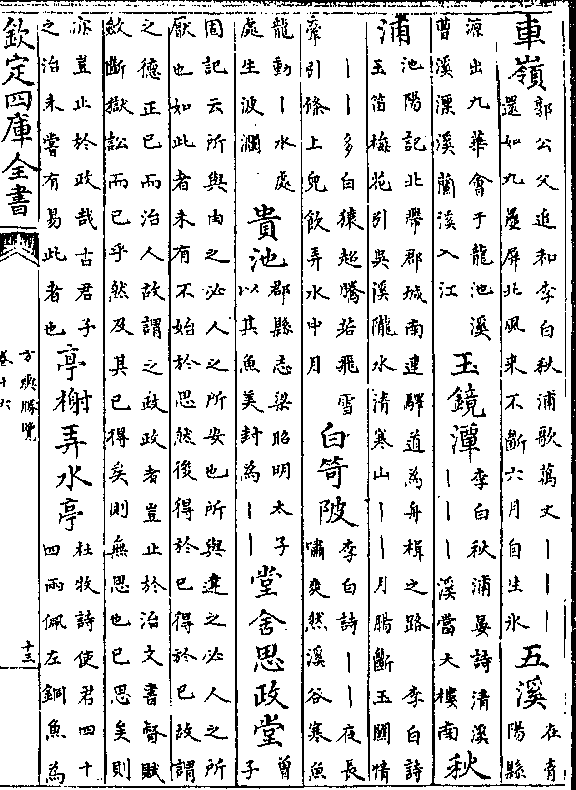 車嶺
郭公父追和李白秋浦歌萬丈丨丨丨
還如九疊屏北風来不斷六月自生氷
五溪
在青
陽縣
源出九華會于龍池溪
曹溪漂溪蘭溪入江
玉鏡潭
李白秋浦晏詩清溪
丨丨丨溪當大樓南
秋
浦
池陽記北帶郡城南連驛道為舟楫之路 李白詩
玉笛梅花引吳溪隴水清寒山丨丨月腸斷玉關情
丨丨多白猿超騰若飛雪
牽引條上兒飲弄水中月
白笴陂
李白詩丨丨夜長
嘯爽然溪谷寒魚
龍動丨水處
處生波瀾
貴池
郡縣志梁昭明太子
以其魚美封為丨丨
堂舍思政堂
曾
子
固記云所與由之必人之所安也所與違之必人之所
厭也如此者未有不始於思然後得於已得於已故謂
之德正已而治人故謂之政政者豈止於治文書督賦
斂斷獄訟而已乎然及其已得矣則無思也已思矣則
亦豈止於政哉古君子
之治未嘗有易此者也
亭榭弄水亭
杜牧詩使君四十
四兩佩左銅魚為
欽定四庫全書
方輿勝覽
卷十六
十三